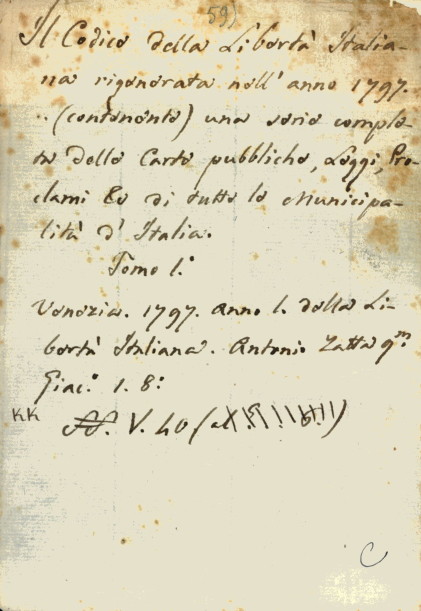 59)
Il Codice della Libertà Italia-
na rigenerata nell' anno 1797.
.. (contenente) una serie comple-
ta delle Carte pubbliche, Leggi, Pro-
clami Ec di tutte le Municipa-
lità d' Italia.
Tomo I.°
Venezia. 1797. anno I. della Li-
bertà Italiana. Antonio Zatta q.m
Giac.° 1. 8.°
KK
V. 40
C